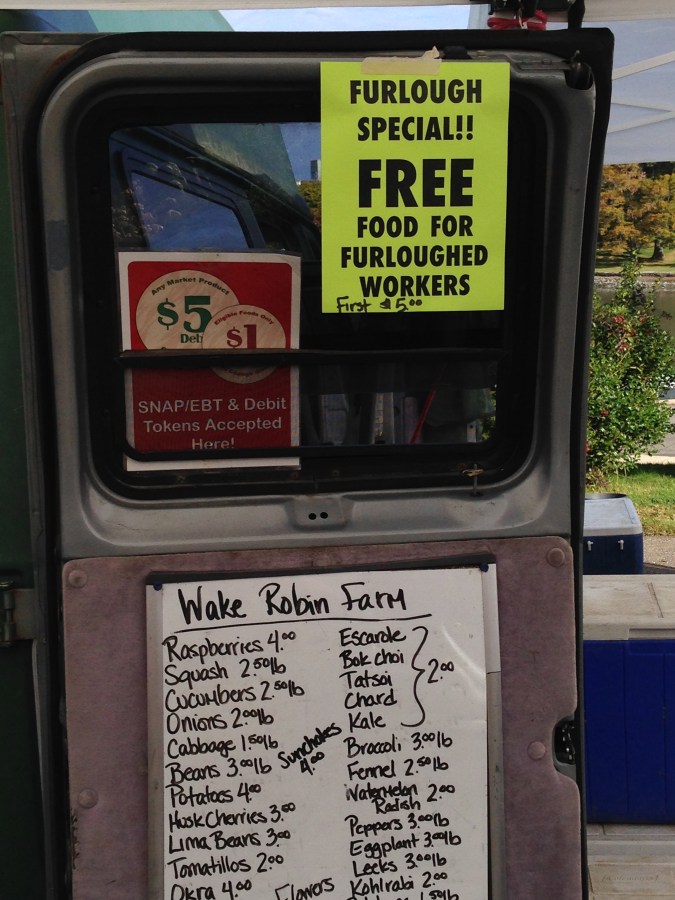 FURLOUGH
SPECIAL!!
FREE
FOOD FOR
FURLOUGHED
WORKERS
First $5.00
Any Market Product
$5
Deb
Eligible Foods Only
$1
SNAP/EBT & Debit
Tokens Accepted
Here!
Wake Robin Farm
Raspberries 4.00
Squash 2.50lb
Cucumbers 2.50lb
Onions 2.00lb
Cabbage 1.50lb
Beans 3.00lb
Potatoes 4.00
Husk Cherries 3.00
Lima Beans 3.00
Tomatillos 2.00
Okra 4.00
Sunchokes
4.00
Flowers
Escarole
Bok choi
Tatsoi
Chard
Kale
2.00
Broccoli 3.00lb
Fennel 2.50lb
Watermelon
Radish 2.00
Peppers 3.00lb
Eggplant 3.00lb
Leeks 3.00lb
Kohlrabi 2.00